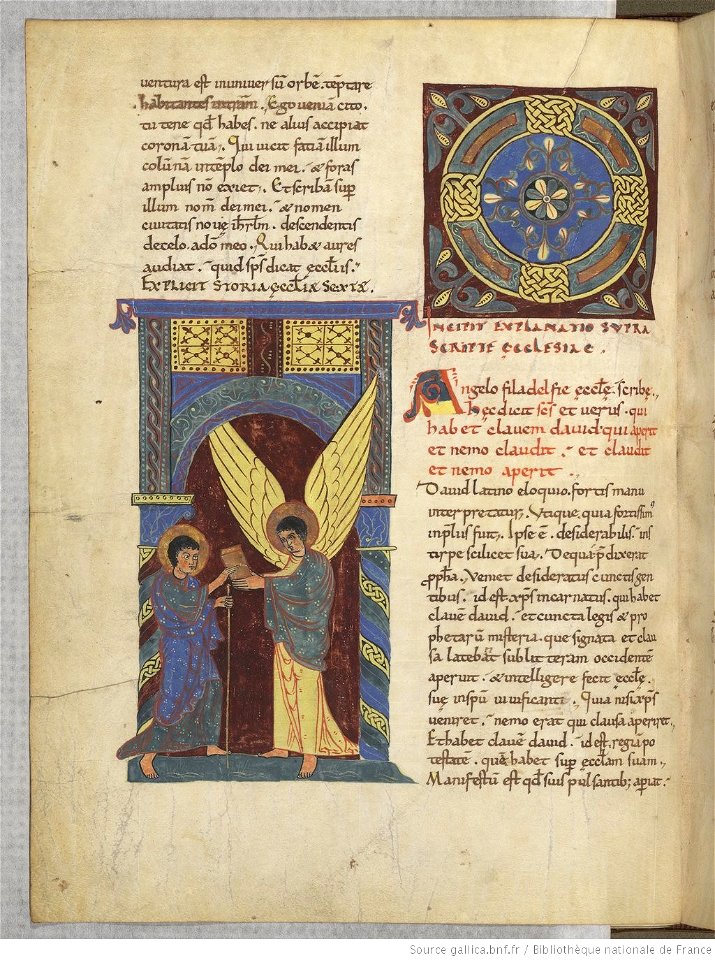 ventura est inuniversū orbē. tēptare
habitantes interram. Ego venia cito,
tu tene qđ habes. ne alius accipiat
coronā tuā. Qui vicit faciā illum
colūnā intēplo dei mei. & foras
amplius nō exiet. Et scribā sup
illum nom̄ dei mei. & nomen
civitatis novę ihrlm̄. descendentis
decelo. adō meo. Qui hab& aures
audiat. quid sp̄s dicat ęccl̄iis.
EXPLICIT STORIA ĘCCL̄IĘ SEXTĘ.
INCIPIT EXPLANATIO SUPRA
SCRIPTE ĘCCLESIAE.
Angelo filadelfie ęccl̄ę. scribe,
hęc dicit sc̄s et verus. qui
habet clavem david. qui aperit
et nemo claudit. et claudit
et nemo aperit.
David latino eloquio. fortis manu
interpretatur. Utique. quia fortissim⁹
inp̄lius fuit. Ipse ē. desiderabilis. ins
tirpe scilicet sua. De qua p̄dixerat
p̄pha. Veniet desideratus cunctis gen
tibus. id est xp̄s incarnatus. qui habet
clavē david. et cuncta legis & pro
phetarū misteria. que signata et clau
sa latebāt sub litteram occidentē
aperuit. & intelligere fecit ęccl̄ę
suę inspū vivificante. Quia nisi xp̄s
veniret. nemo erat qui clausa aperiret.
Et habet clavē david. id est, regiā po
testatē. quē habet sup ęccl̄am suam.
Manifestū est qđ suis pulsantib; aperiat.
Source gallica.bnf.fr / Bibliothèque nationale de France